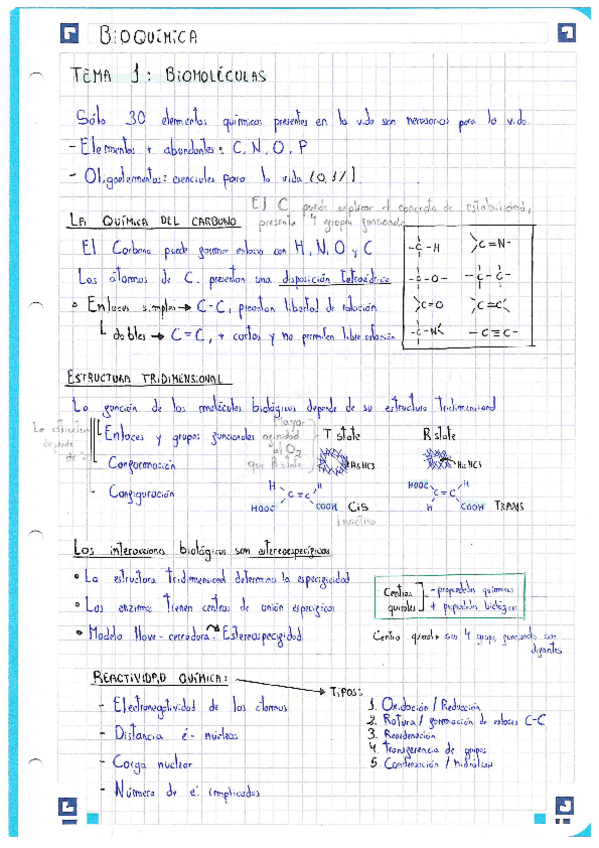 BIOQUÍMICA
TEMA 1: BIOMOLÉCULAS
Sólo 30 elementos químicos presentes en la vida son necesarios para la vida.
- Elementos + abundantes: C, N, O, P
- Oligoelementos: esenciales para la vida (0,1%)
El C puede explicar el concepto de estabilidad,
presenta 4 grupos funcionales
LA QUÍMICA DEL CARBONO
El Carbono puede formar enlaces con H, N, O y C
Los átomos de C. presentan una disposición tetraédrica
• Enlaces simples → C-C, presentan libertad de rotación
dobles → C=C, + cortos y no permiten libre rotación
-C-H
C=N-
-C-O-
-C-C-
C=O
C=C
-C-N
-C≡C-
ESTRUCTURA TRIDIMENSIONAL
La función de las moléculas biológicas depende de su estructura tridimensional
La estructura depende de:
Enlaces y grupos funcionales
Conformación
Configuración
Mayor afinidad al O2 que R state
T state
R state
His HC3
His HC3
H H
C=C
HOOC COOH CIS
Inactivo
HOOC H
C=C
H COOH TRANS
Las interacciones biológicas son estereoespecíficas
• La estructura tridimensional determina la especificidad
• Las enzimas tienen centros de unión específicos
• Modelo llave-cerradura: Estereoespecifidad
Centros quirales
- propiedades químicas
+ propiedades biológicas
Centro quiral: con 4 grupos funcionales
REACTIVIDAD QUÍMICA:
- Electronegatividad de los átomos
- Distancia é - núcleos
- Carga nuclear
- Número de é implicados
TIPOS:
1. Oxidación / Reducción
2. Rotura / formación de enlaces C-C
3. Reordenación
4. Transferencia de grupos
5. Condensación / hidrólisis